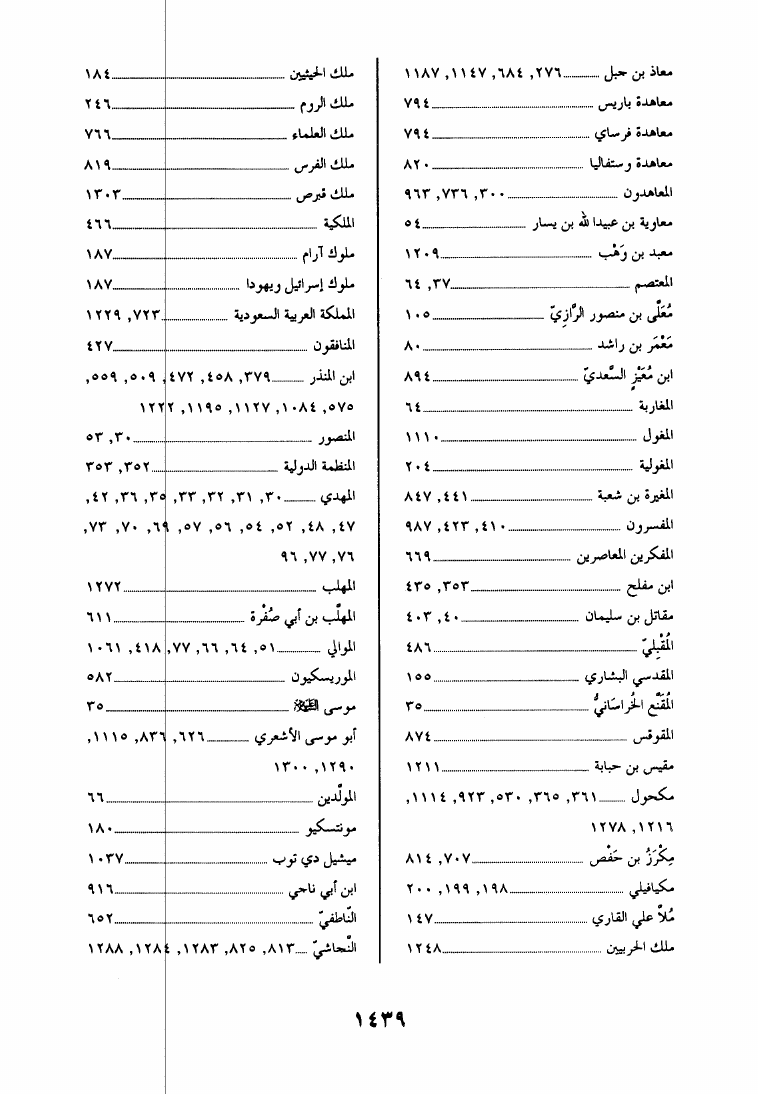 معاذ بن جبل ........ ٢٧٦, ٦٨٤, ١١٤٧, ١١٨٧
معاهدة باريس ........ ٧٩٤
معاهدة فرساي ........ ٧٩٤
معاهدة وستفاليا ........ ٨٢٠
المعاهدون ........ ٣٠٠, ٧٣٦, ٩٦٣
معاوية بن عبيدالله بن يسار ........ ٥٤
معبد بن وَهْب ........ ١٢٠٩
المعتصم ........ ٣٧, ٦٤
مُعَلَّى بن منصور الرَّازِيّ ........ ١٠٥
مَعْمَر بن راشد ........ ٨٠
ابن مُعَيْزٍ السَّعديّ ........ ٨٩٤
المغاربة ........ ٦٤
المغول ........ ١١١٠
المغولية ........ ٢٠٤
المغيرة بن شعبة ........ ٤٤١, ٨٤٧
المفسرون ........ ٤١٠, ٤٢٣, ٩٨٧
المفكرين المعاصرين ........ ٦٦٩
ابن مفلح ........ ٣٥٣, ٤٣٥
مقاتل بن سليمان ........ ٤٠, ٤٠٣
المُقْبِليّ ........ ٤٨٦
المقدسي البشاري ........ ١٥٥
المُقَنَّع الخُراسَانيُّ ........ ٣٥
المقوقس ........ ٨٧٤
مقيس بن حبابة ........ ١٢١١
مكحول ........ ٣٦١, ٣٦٥, ٥٣٠, ٩٢٣, ١١١٤,
١٢١٦, ١٢٧٨
مِكْرَزُ بن حَفْص ........ ٧٠٧, ٨١٤
مكيافيلي ........ ١٩٨, ١٩٩, ٢٠٠
مُلاَّ علي القاري ........ ١٤٧
ملك الحربيين ........ ١٢٤٨
ملك الحيثيين ........ ١٨٤
ملك الروم ........ ٢٤٦
ملك العلماء ........ ٧٦٦
ملك الفرس ........ ٨١٩
ملك قبرص ........ ١٣٠٣
الملكية ........ ٤٦٦
ملوك آرام ........ ١٨٧
ملوك إسرائيل ويهودا ........ ١٨٧
المملكة العربية السعودية ........ ٧٢٣, ١٢٢٩
المنافقون ........ ٤٢٧
ابن المنذر ........ ٣٧٩, ٤٥٨, ٤٧٢, ٥٠٩, ٥٥٩,
٥٧٥, ١٠٨٤, ١١٢٧, ١١٩٥, ١٢٢٢
المنصور ........ ٣٠, ٥٣
المنظمة الدولية ........ ٣٥٢, ٣٥٣
المهدي ........ ٣٠, ٣١, ٣٢, ٣٣, ٣٥, ٣٦, ٤٢,
٤٧, ٤٨, ٥٢, ٥٤, ٥٦, ٥٧, ٦٩, ٧٠, ٧٣,
٧٦, ٧٧, ٩٦
المهلب ........ ١٢٧٢
المهلَّب بن أبي صُفْرة ........ ٦١١
الموالي ........ ٥١, ٦٤, ٦٦, ٧٧, ٤١٨, ١٠٦١
الموريسكيون ........ ٥٨٢
موسى ........ ٣٥
أبو موسى الأشعري ........ ٦٢٦, ٨٣٦, ١١١٥,
١٢٩٠, ١٣٠٠
المولَّدين ........ ٦٦
مونتسكيو ........ ١٨٠
ميشيل دي توب ........ ١٠٣٧
ابن أبي ناجي ........ ٩١٦
النَّاطفيّ ........ ٦٥٢
النَّجاشيّ ........ ٨١٣, ٨٢٥, ١٢٨٣, ١٢٨٤, ١٢٨٨
١٤٣٩